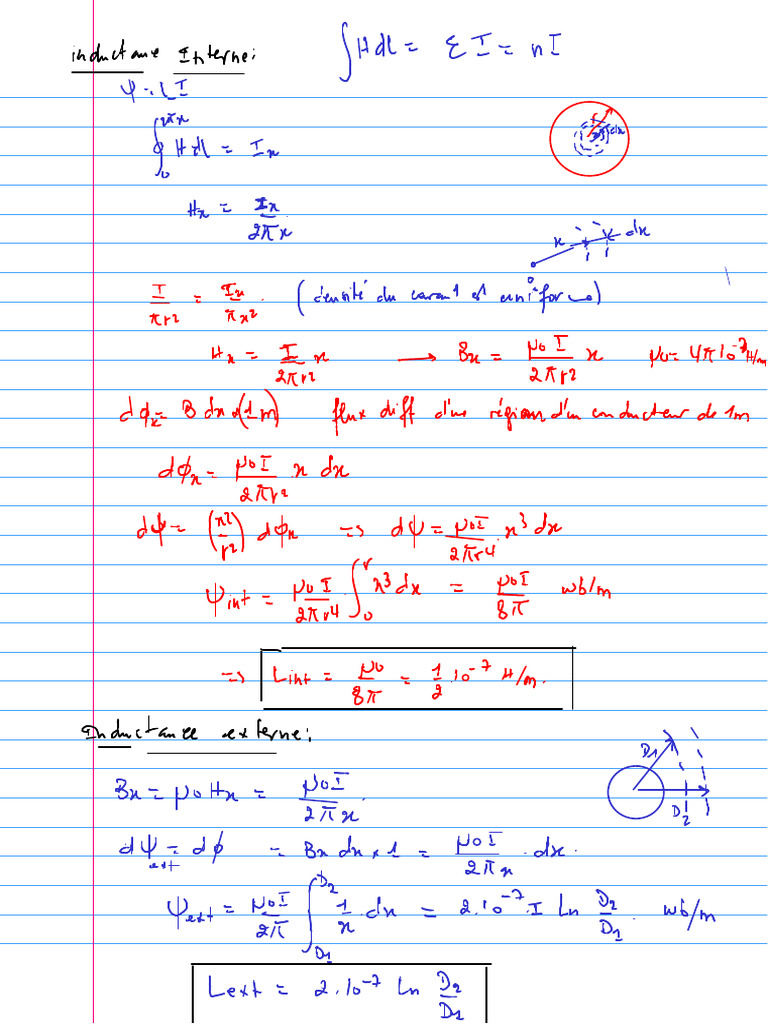 inductance Interne:
∫Hdl = Σ I = n I
Ψ = L I
∮₀^{2πx} H dl = Ix
Hx = Ix / 2πx
r
dx
x dx
I / πr² = Ix / πx² (densité du courant est uniforme)
Hx = I / 2πr² x → Bx = μ0 I / 2πr² x μ0 = 4π10⁻⁷ H/m
dϕx = B dx × (1m) flux diff d'une région d'un conducteur de 1m
dϕx = μ0 I / 2πr² x dx
dΨ = (x² / r²) dϕx => dΨ = μ0 I / 2πr⁴ . x³ dx
Ψint = μ0 I / 2πr⁴ ∫₀^r x³ dx = μ0 I / 8π wb/m
=> Lint = μ0 / 8π = 1/2 . 10⁻⁷ H/m.
Inductance externe:
D1
D2
Bx = μ0 Hx = μ0 I / 2πx.
dΨext = dϕ = Bx dx × 1 = μ0 I / 2πx . dx.
Ψext = μ0 I / 2π ∫_{D1}^{D2} 1/x . dx = 2.10⁻⁷. I Ln D2/D1. wb/m
Lext = 2.10⁻⁷ Ln D2/D1